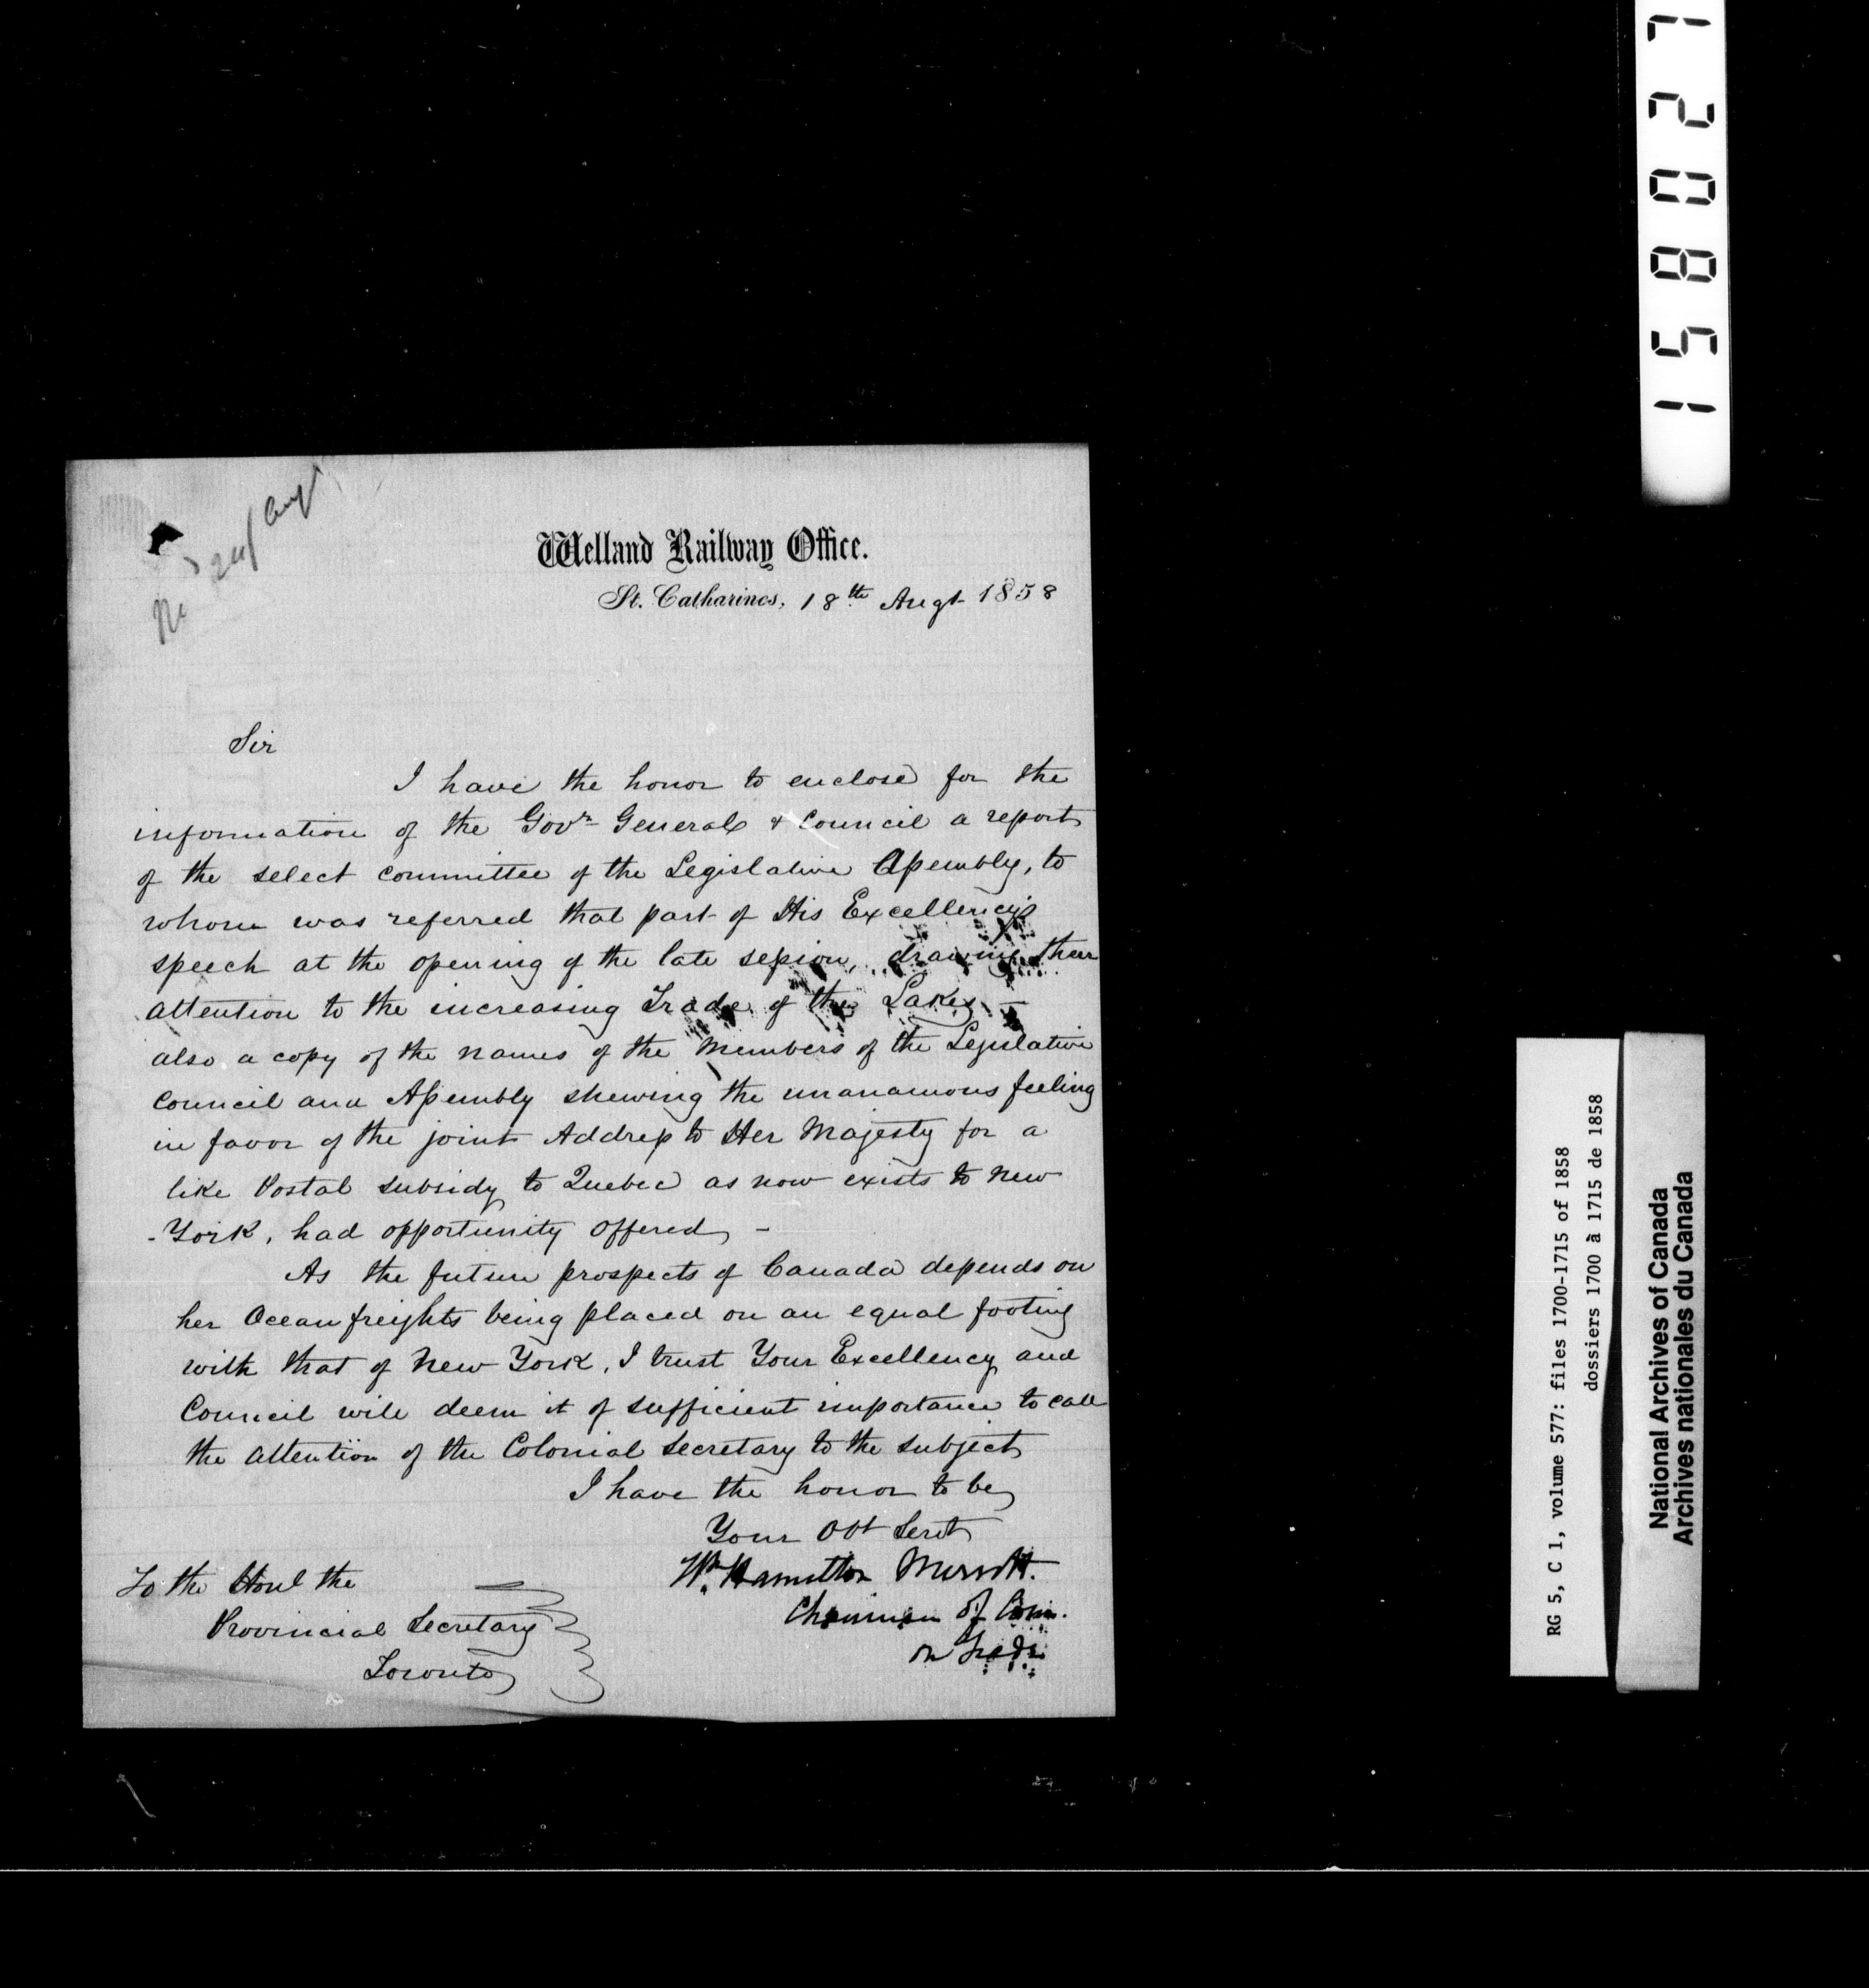 Welland Railway Office.
St. Catharines, 18th Augt 1858
24/ Augt
Sir
I have the honor to enclose for the
information of the Govr General & Council a report
of the select committee of the Legislative Assembly, to
whom was referred that part of His Excellency's
speech at the opening of the late session, drawing their
attention to the increasing Trade of the Lakes —
also a copy of the names of the Members of the Legislative
Council and Assembly shewing the unanamous feeling
in favor of the joint Address to Her Majesty for a
like Postal subsidy to Quebec as now exists to New
-York, had opportunity offered, -
As the future prospects of Canada depends on
her Ocean freights being placed on an equal footing
with that of New York, I trust Your Excellency and
Council will deem it of sufficient importance to call
the attention of the Colonial Secretary to the subject
I have the honor to be
Your Obt Servt
Wm Hamilton Merritt.
Chairman of Com.
on Trade
To the Honl the
Provincial Secretary
Toronto
RG 5, C 1, volume 577: files 1700-1715 of 1858
dossiers 1700 à 1715 de 1858
National Archives of Canada
Archives nationales du Canada